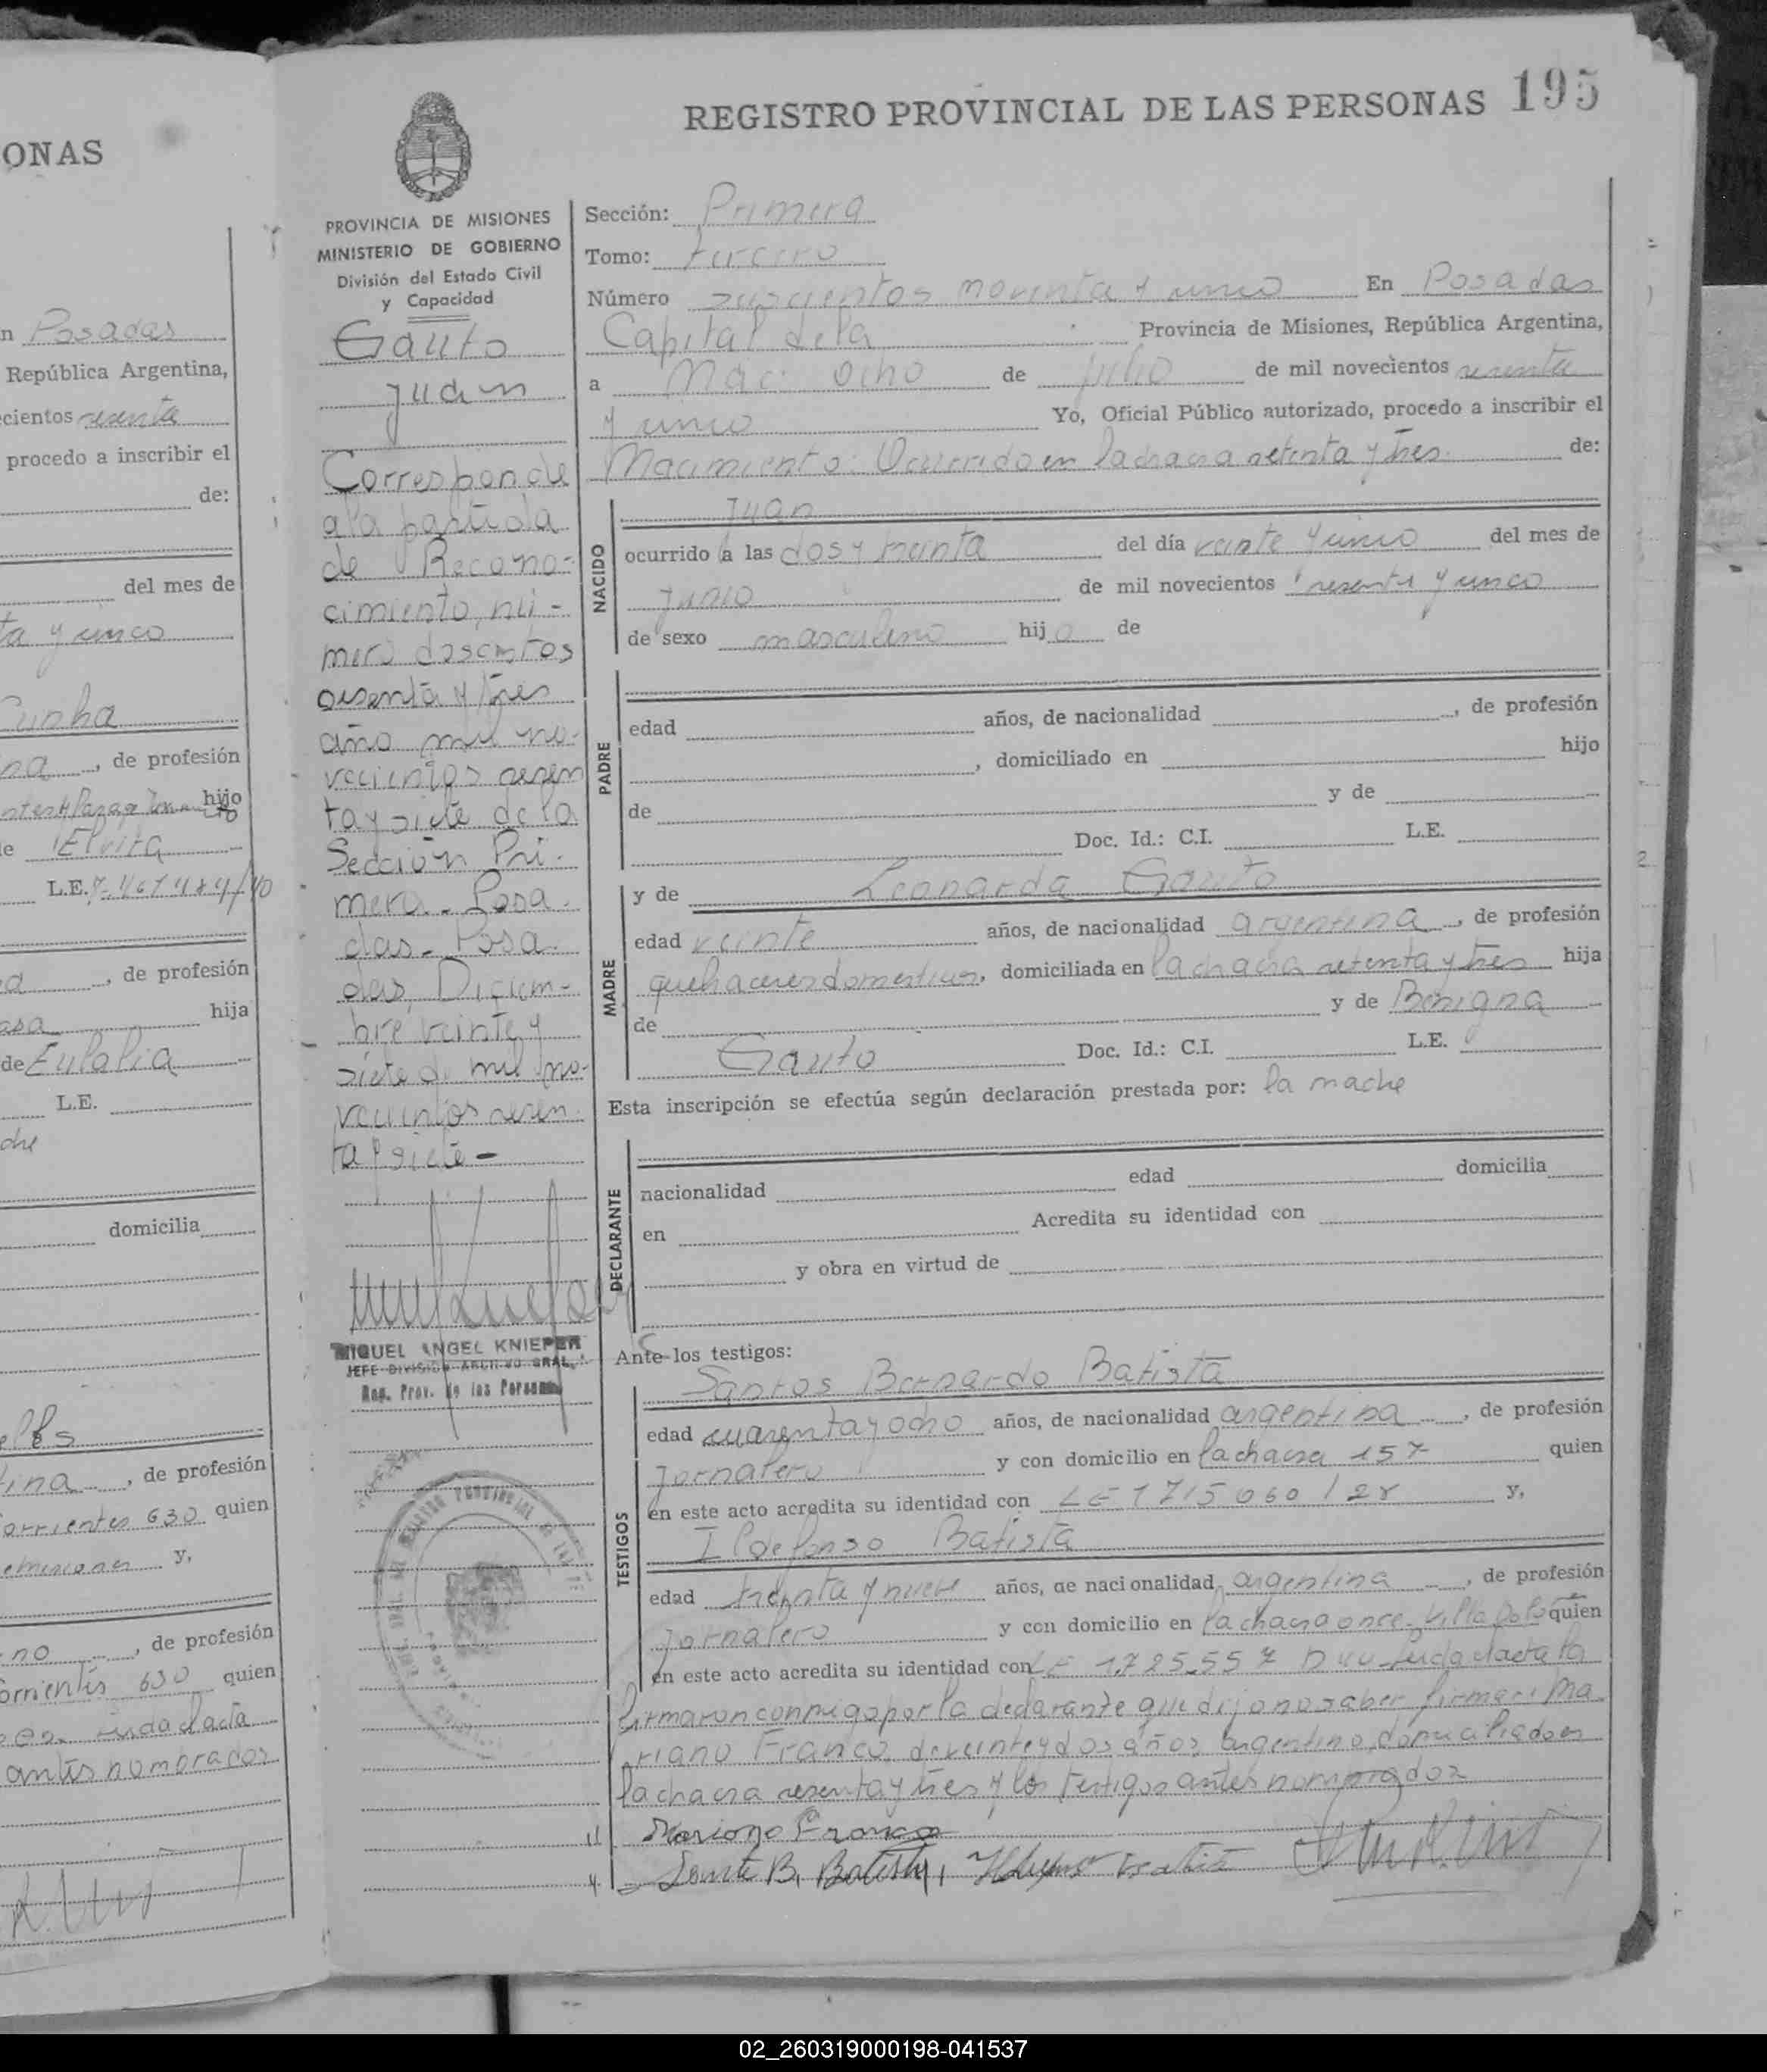 ONAS
n Posadas
República Argentina,
ecientos sesenta
procedo a inscribir el
de:
del mes de
ta y unco
Cunha
na, de profesión
hijo
de Elvira
L.E.
, de profesión
hija
de Eulalia
L.E.
domicilia
tina, de profesión
Corrientes 630 quien
y,
no, de profesión
orrientes 630 quien
antes nombrados
REGISTRO PROVINCIAL DE LAS PERSONAS 195
PROVINCIA DE MISIONES
MINISTERIO DE GOBIERNO
División del Estado Civil
y Capacidad
Gauto
Juan
Corresponde
a la partida
de Recono-
cimiento, nú-
mero doscintos
ta y siete de la
Sección Pri-
mera - Posa-
das - Posa-
das, Diciem-
bre veinte y
siete de mil no-
vecientos sesen-
ta y siete -
MIGUEL ANGEL KNIEPER
JEFE DIVISION ARCHIVO GRAL.
Reg. Prov. de las Personas
Sección: Primera
Tomo: tercero
Número seiscientos noventa y unco En Posadas
Capital de la Provincia de Misiones, República Argentina,
a ocho de julio de mil novecientos sesenta
y unco Yo, Oficial Público autorizado, procedo a inscribir el
Nacimiento. Ocurrido en la chacra setenta y tres. de:
NACIDO
Juan
ocurrido a las dos y treinta del día veinte y unco del mes de
junio de mil novecientos sesenta y unco
de sexo masculino hijo de
PADRE
edad años, de nacionalidad , de profesión
, domiciliado en hijo
de y de
Doc. Id.: C.I. L.E.
MADRE
y de Leonarda Gauto
edad veinte años, de nacionalidad argentina, de profesión
quehaceres domesticos, domiciliada en la chacra setenta y tres hija
de y de Benigna
Gauto Doc. Id.: C.I. L.E.
Esta inscripción se efectúa según declaración prestada por: la madre
DECLARANTE
nacionalidad edad domicilia
en Acredita su identidad con
y obra en virtud de
Ante los testigos:
TESTIGOS
Santos Bernardo Batista
edad cuarenta y ocho años, de nacionalidad argentina, de profesión
jornalero y con domicilio en la chacra 157 quien
en este acto acredita su identidad con LE 1715060 / y,
Ildefonso Batista
edad treinta y nueve años, de nacionalidad argentina, de profesión
jornalero y con domicilio en la chacra once - Villa quien
en este acto acredita su identidad con LE 1.785.557 leida el acta la
firmaron conmigo por la declarante que dijo no saber firmar: Ma
riano Franco, de veinte y dos años, argentino, domiciliado en
la chacra sesenta y tres y los testigos antes nombrados
Mariano Franco
B. Batista,
02_260319000198-041537